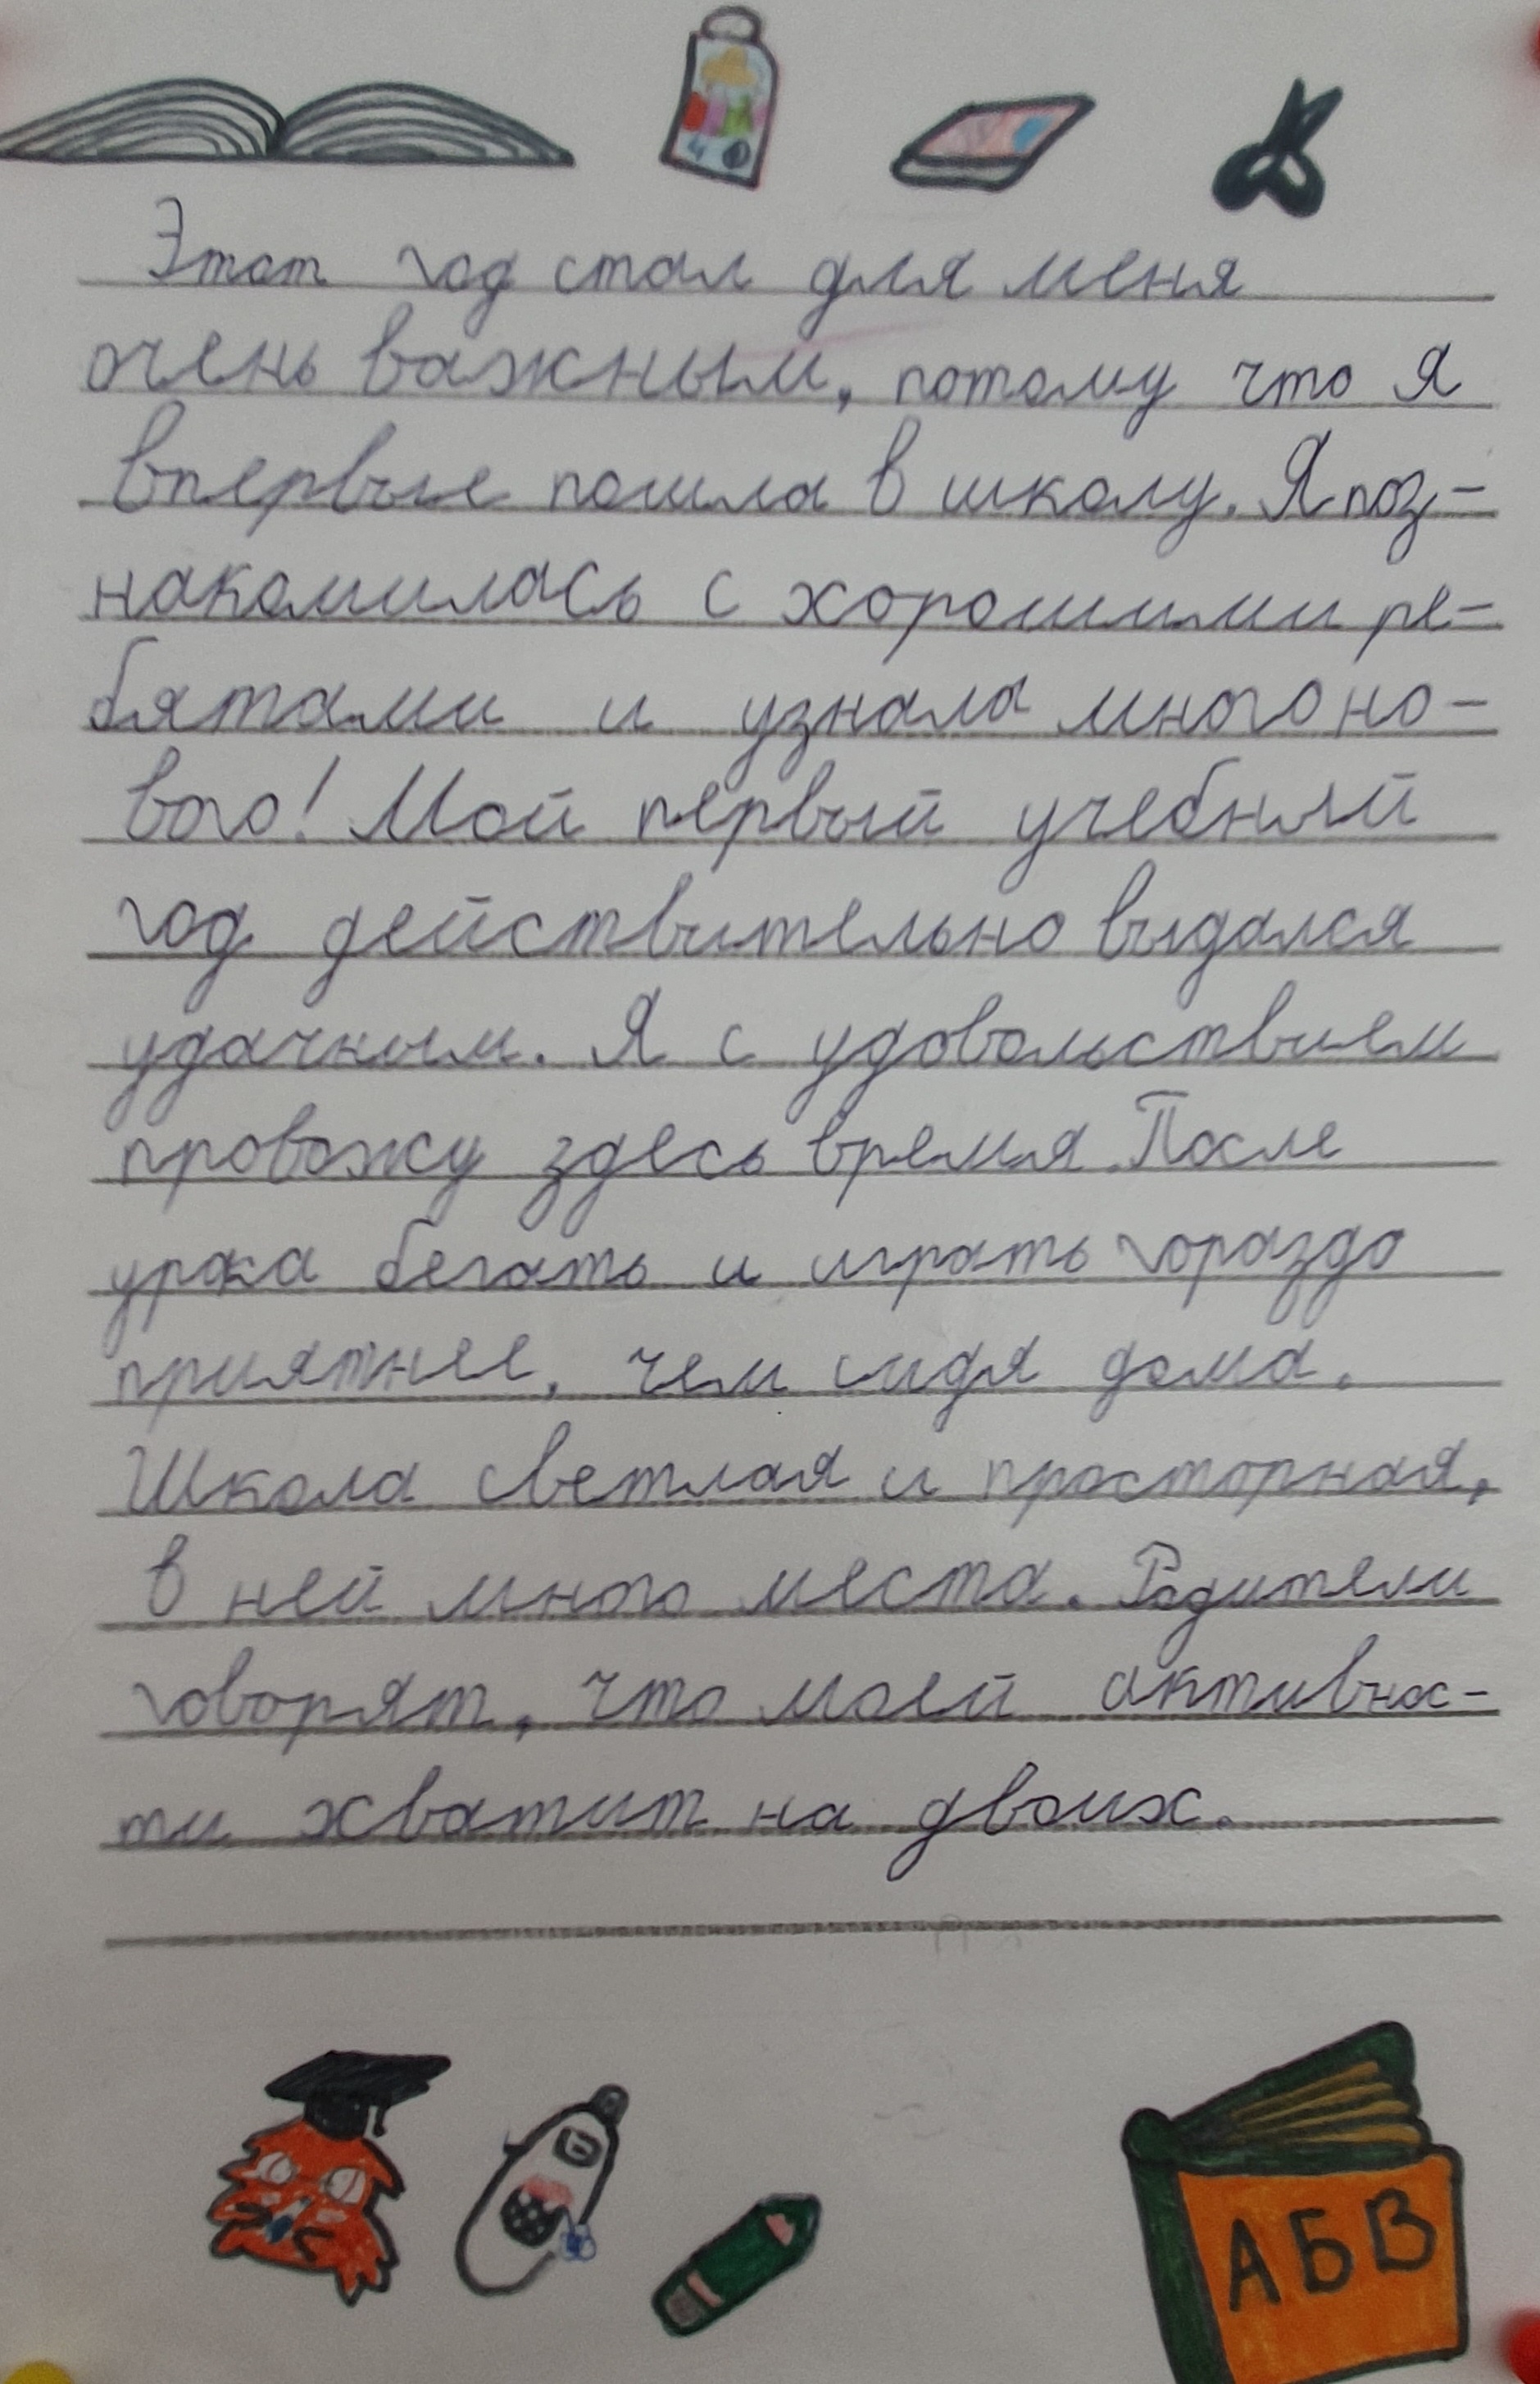 Этот год стал для меня
очень важным, потому что я
впервые пошла в школу. Я поз-
накомилась с хорошими ре-
бятами и узнала много но-
вого! Мой первый учебный
год действительно выдался
удачным. Я с удовольствием
провожу здесь время. После
урока бегать и играть гораздо
приятнее, чем сидя дома.
Школа светлая и просторная,
в ней много места. Родители
говорят, что моей активнос-
ти хватит на двоих.
АБВ